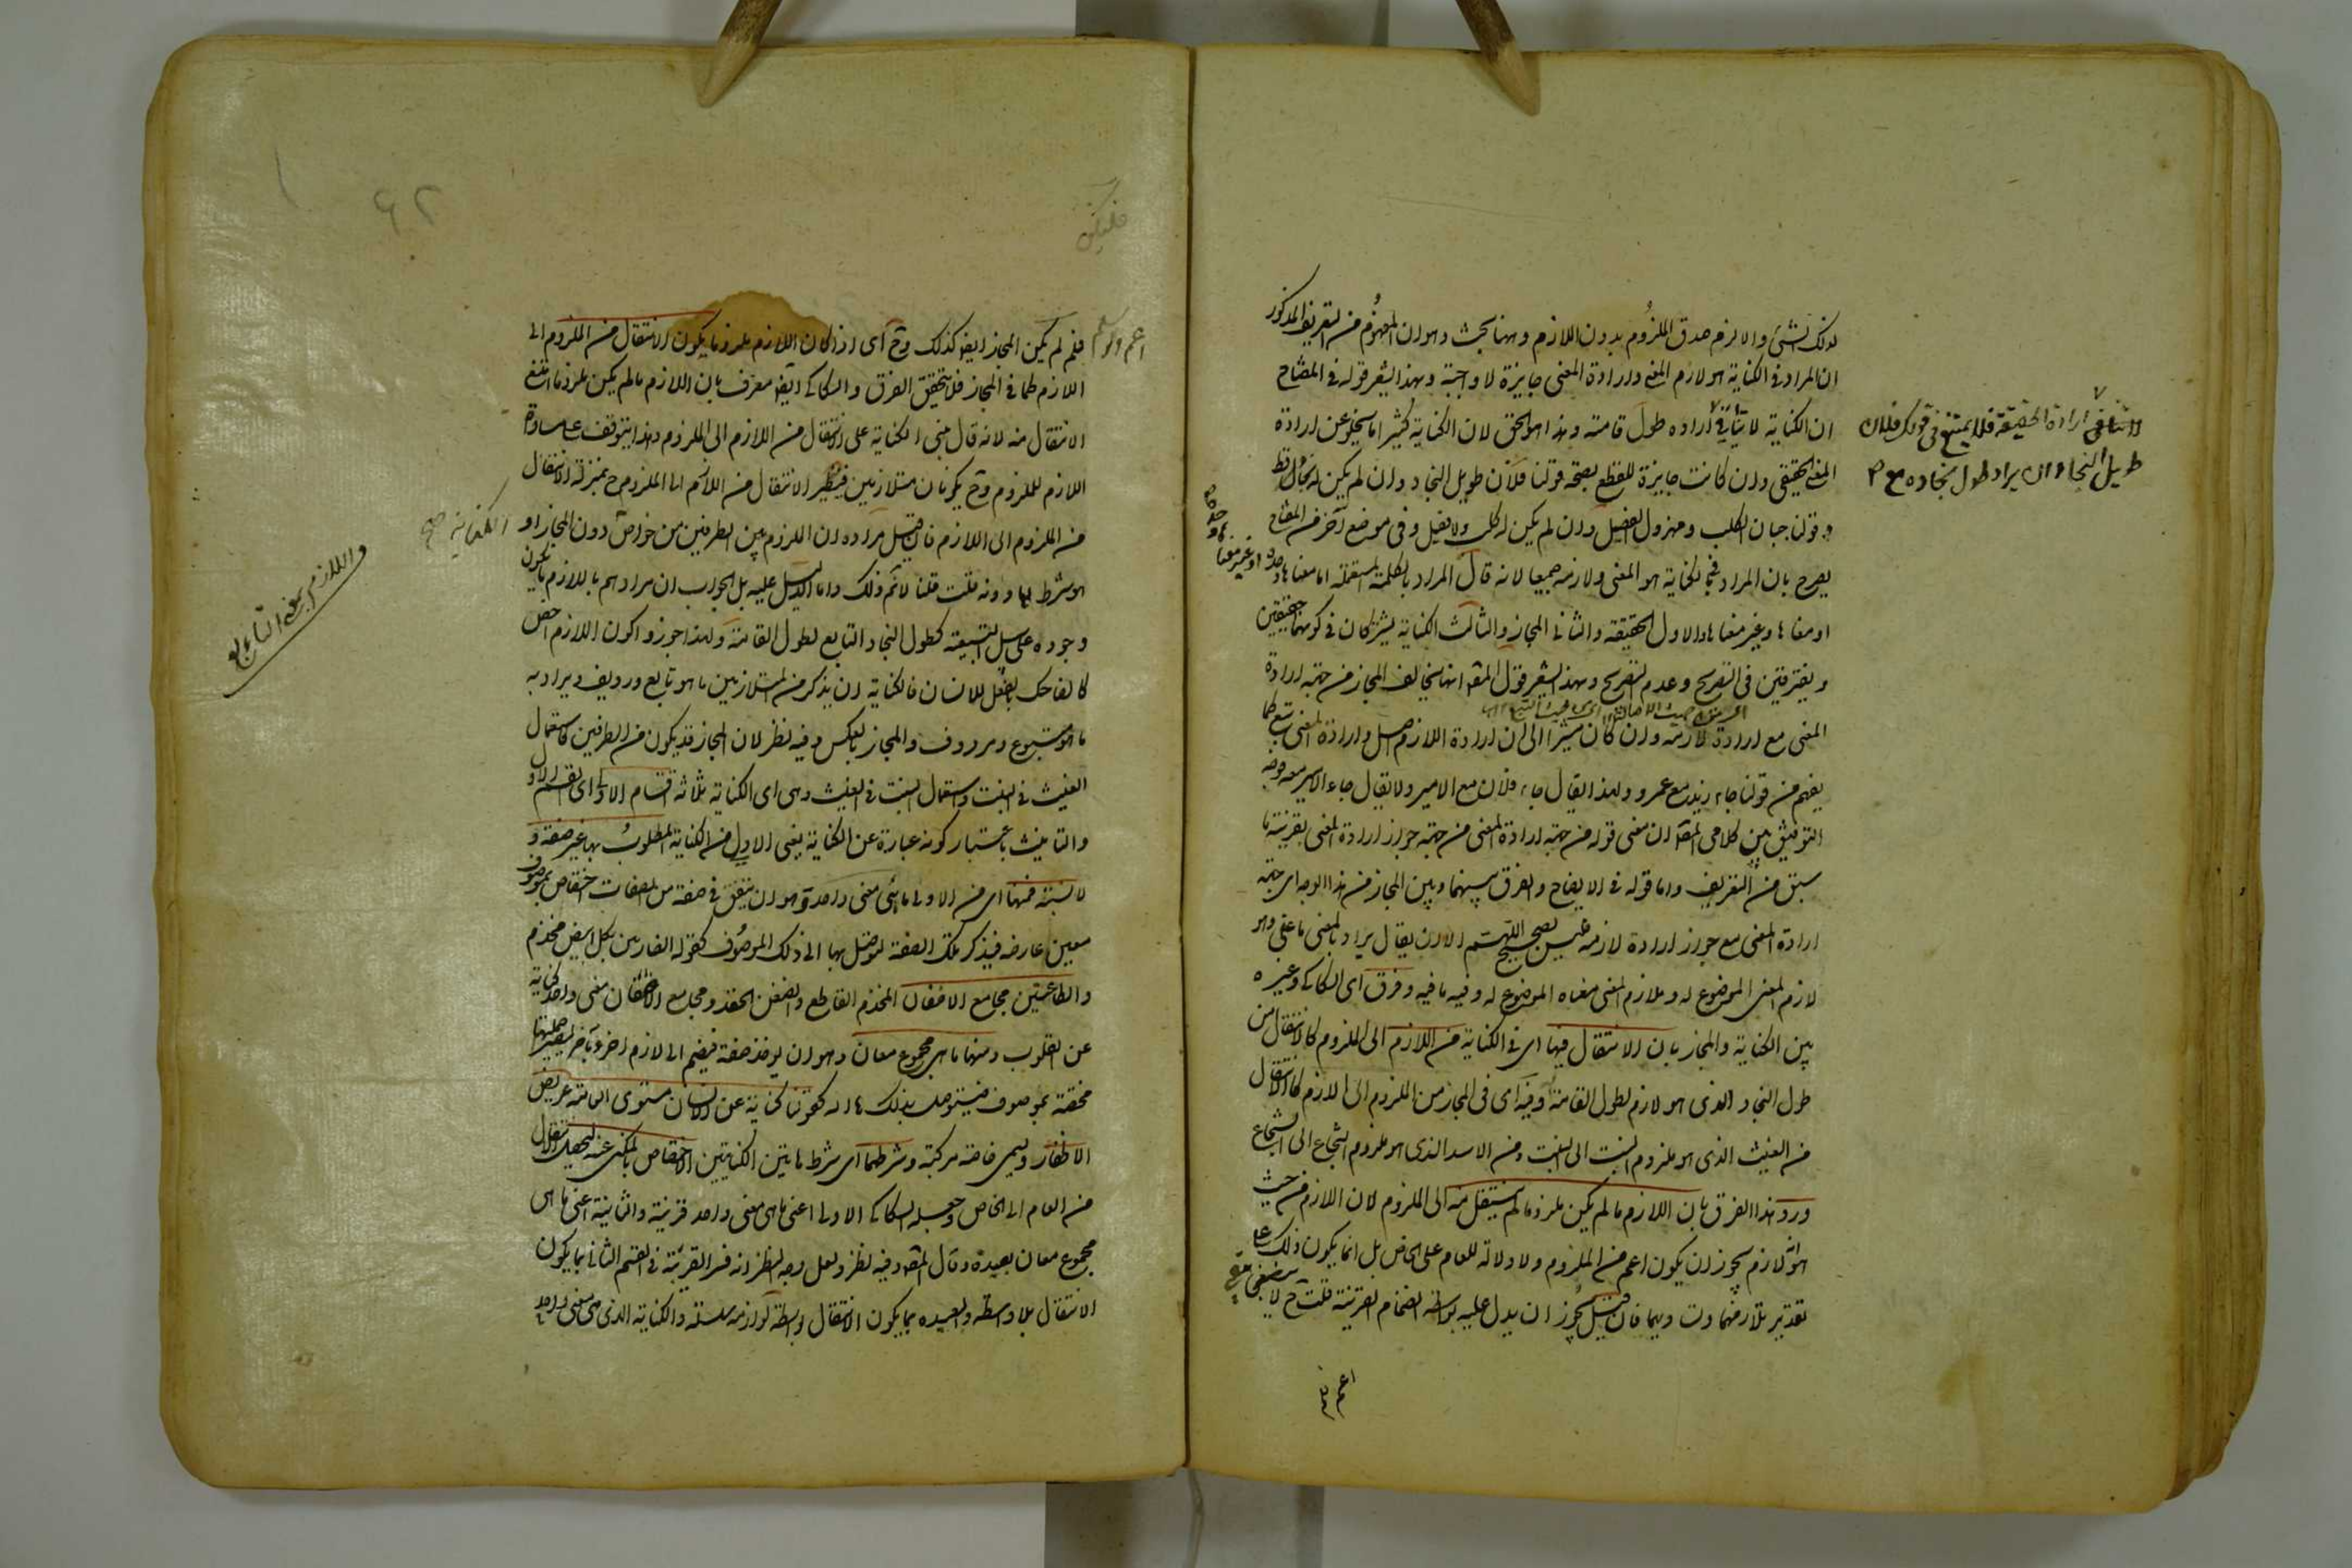 لذلك الشئ والا لزم صدق الملزوم بدون اللازم وههنا بحث وهو ان المفهوم من التعريف المذكور
ان المراد فى الكناية هو لازم المعنى وارادة المعنى جايزة لا واجبة وبهذا يشعر قوله فى المفتاح
ان الكناية لا تنافى ارادة طول قامته وهذا هو الحق لان الكناية كثيرا ما يخلو عن ارادة
المعنى الحقيقى وان كانت جايزة للقطع بصحة قولنا فلان طويل النجاد وان لم يكن له نجاد قط
وقولنا جبان الكلب ومهزول الفصيل وان لم يكن له كلب ولا فصيل وفى موضع آخر من المفتاح
يصرح بان المراد فى الكناية هو المعنى ولازمه جميعا لانه قال المراد بالكلمة المستعملة اما معناها وحده او غير معناها وحده
او معناها وغير معناها والاول الحقيقة والثانى المجاز والثالث الكناية يشتركان فى كونهما حقيقتين
ويفترقين فى التصريح وعدم التصريح وبهذا يشعر قول المصـ انها تخالف المجاز من جهة ارادة
المعنى مع ارادة لازمه وان كان مشيرا الى ان ارادة اللازم اصل وارادة المعنى تبع كما
يفهم من قولنا جاء زيد مع عمرو ولهذا يقال جاء فلان مع الامير ولا يقال جاء الامير معه فوجه
التوفيق بين كلامى المصـ ان معنى قوله من جهة ارادة المعنى من جهة جواز ارادة المعنى بقرينة ما
سبق من التعريف واما قوله فى الايضاح والفرق بينهما وبين المجاز من هذا الوجه اى من جهة
ارادة المعنى مع جواز ارادة لازمه فليس بصحيح اللهم الا ان يقال يراد بالمعنى ما عنى وهو
لازم المعنى الموضوع له وبلازم المعنى معناه الموضوع له وفيه ما فيه وفرق اى السكاكى وغيره
بين الكناية والمجاز بان الانتقال فيها اى فى الكناية من اللازم الى الملزوم كالانتقال من
طول النجاد الذى هو لازم لطول القامة وفيه اى فى المجاز من الملزوم الى اللازم كالانتقال
من الغيث الذى هو ملزوم النبت الى النبت ومن الاسد الذى هو ملزوم الشجاع الى الشجاع
ورد هذا الفرق بان اللازم ما لم يكن ملزوما لم ينتقل منه الى الملزوم لان اللازم من حيث
انه لازم يجوز ان يكون اعم من الملزوم ولا دلالة للعام على الخاص بل انما يكون ذلك على
تقدير تلازمهما وتساويهما فان قيل يجوز ان يدل عليه بواسطة انضمام القرينة قلت ح لا يبقى
اعم
لا تنافى ارادة الحقيقة فلا يمتنع فى قولك فلان
طويل النجاد ان يراد طول نجاده مع
اعم ولو سلم
فلم لم يكن المجاز ايضا كذلك وح اى اذا كان اللازم ملزوما يكون الانتقال من الملزوم الى
اللازم كما فى المجاز فلا يتحقق الفرق والسكاكى ايضا معترف بان اللازم ما لم يكن ملزوما امتنع
الانتقال منه لانه قال مبنى الكناية على الانتقال من اللازم الى الملزوم وهذا يتوقف على مساواة
اللازم للملزوم وح يكونان متلازمين فيصير الانتقال من اللازم الى الملزوم ح بمنزلة الانتقال
من الملزوم الى اللازم فان قيل مراده ان اللزوم بين الطرفين من خواص دون المجاز او
الكناية صح
هو شرط لها دونه قلت قلنا لا نم ذلك وما الدليل عليه بل الجواب ان مرادهم باللازم ما يكون
وجوده على سبيل التبعية كطول النجاد التابع لطول القامة ولهذا جوزوا كون اللازم اخص
كالضاحك بالفعل للانسان فالكناية ان يذكر من المتلازمين ما هو تابع ورديف ويراد به
ما هو متبوع ومردوف والمجاز بالعكس وفيه نظر لان المجاز قد يكون من الطرفين كاستعمال
الغيث فى النبت واستعمال النبت فى الغيث وهى اى الكناية ثلاثة اقسام الاولى اى القسم الاول
والتانيث باعتبار كونه عبارة عن الكناية يعنى الاول من الكناية المطلوب بها غير صفة و
لا نسبة فمنها اى من الاولى ما هى معنى واحد وهو ان يتفق فى صفة من الصفات اختصاص بموصوف
معين عارض فيذكر تلك الصفة ليتوصل بها الى ذلك الموصوف كقوله الضاربين بكل ابيض مخذم
والطاعنين مجامع الاضغان المخذم القاطع والضغن الحقد ومجامع الاضغان معنى واحد كناية
عن القلوب ومنها ما هى مجموع معان وهو ان يوخذ صفة فيضم الى لازم آخر وآخر ليصير جملتها
مختصة بموصوف فيتوصل بذكرها اليه كقولنا كناية عن الانسان حى مستوى القامة عريض
الاظفار ويسمى خاصة مركبة وشرطهما اى شرط هاتين الكنايتين الاختصاص بالمكنى عنه ليحصل الانتقال
من العام الى الخاص وجعل السكاكى الاولى اعنى ما هى معنى واحد قريبة والثانية اعنى ما هى
مجموع معان بعيدة وقال المصـ وفيه نظر ولعل وجه النظر انه فسر القريبة فى القسم الثانى بما يكون
الانتقال بلا واسطة والبعيدة بما يكون الانتقال بواسطة لوازم متسلسلة والكناية التى هى معنى واحد
واللازم بمعنى التابع